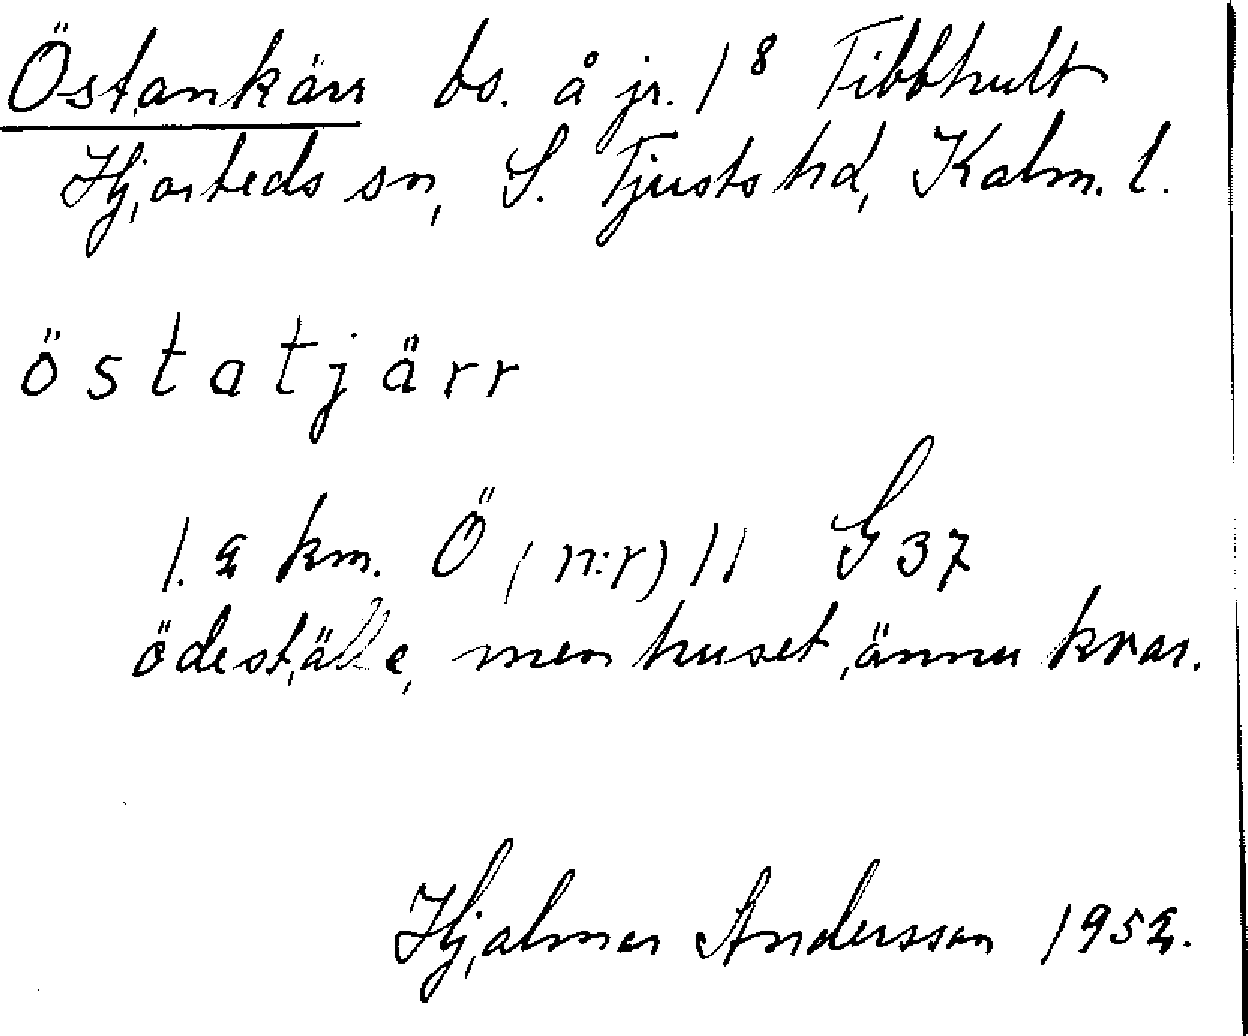 Östankärr bs. å jr. 1⁸ Tibbhult
Hjorteds sn, S. Tjusts hd, Kalm. l.
östatjärr
1.2 km. Ö (n:r) 11 G 37
ödeställe, men huset ännu kvar.
Hjalmar Andersson 1952.